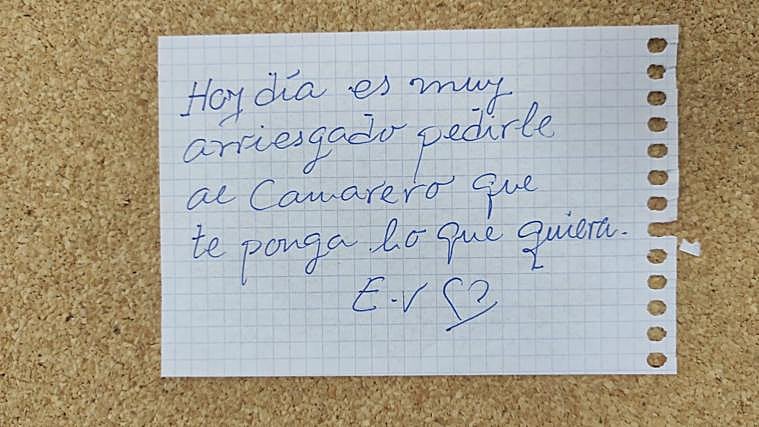 Hoy día es muy
arriesgado pedirle
al Camarero que
te ponga lo que quiera.
E.V